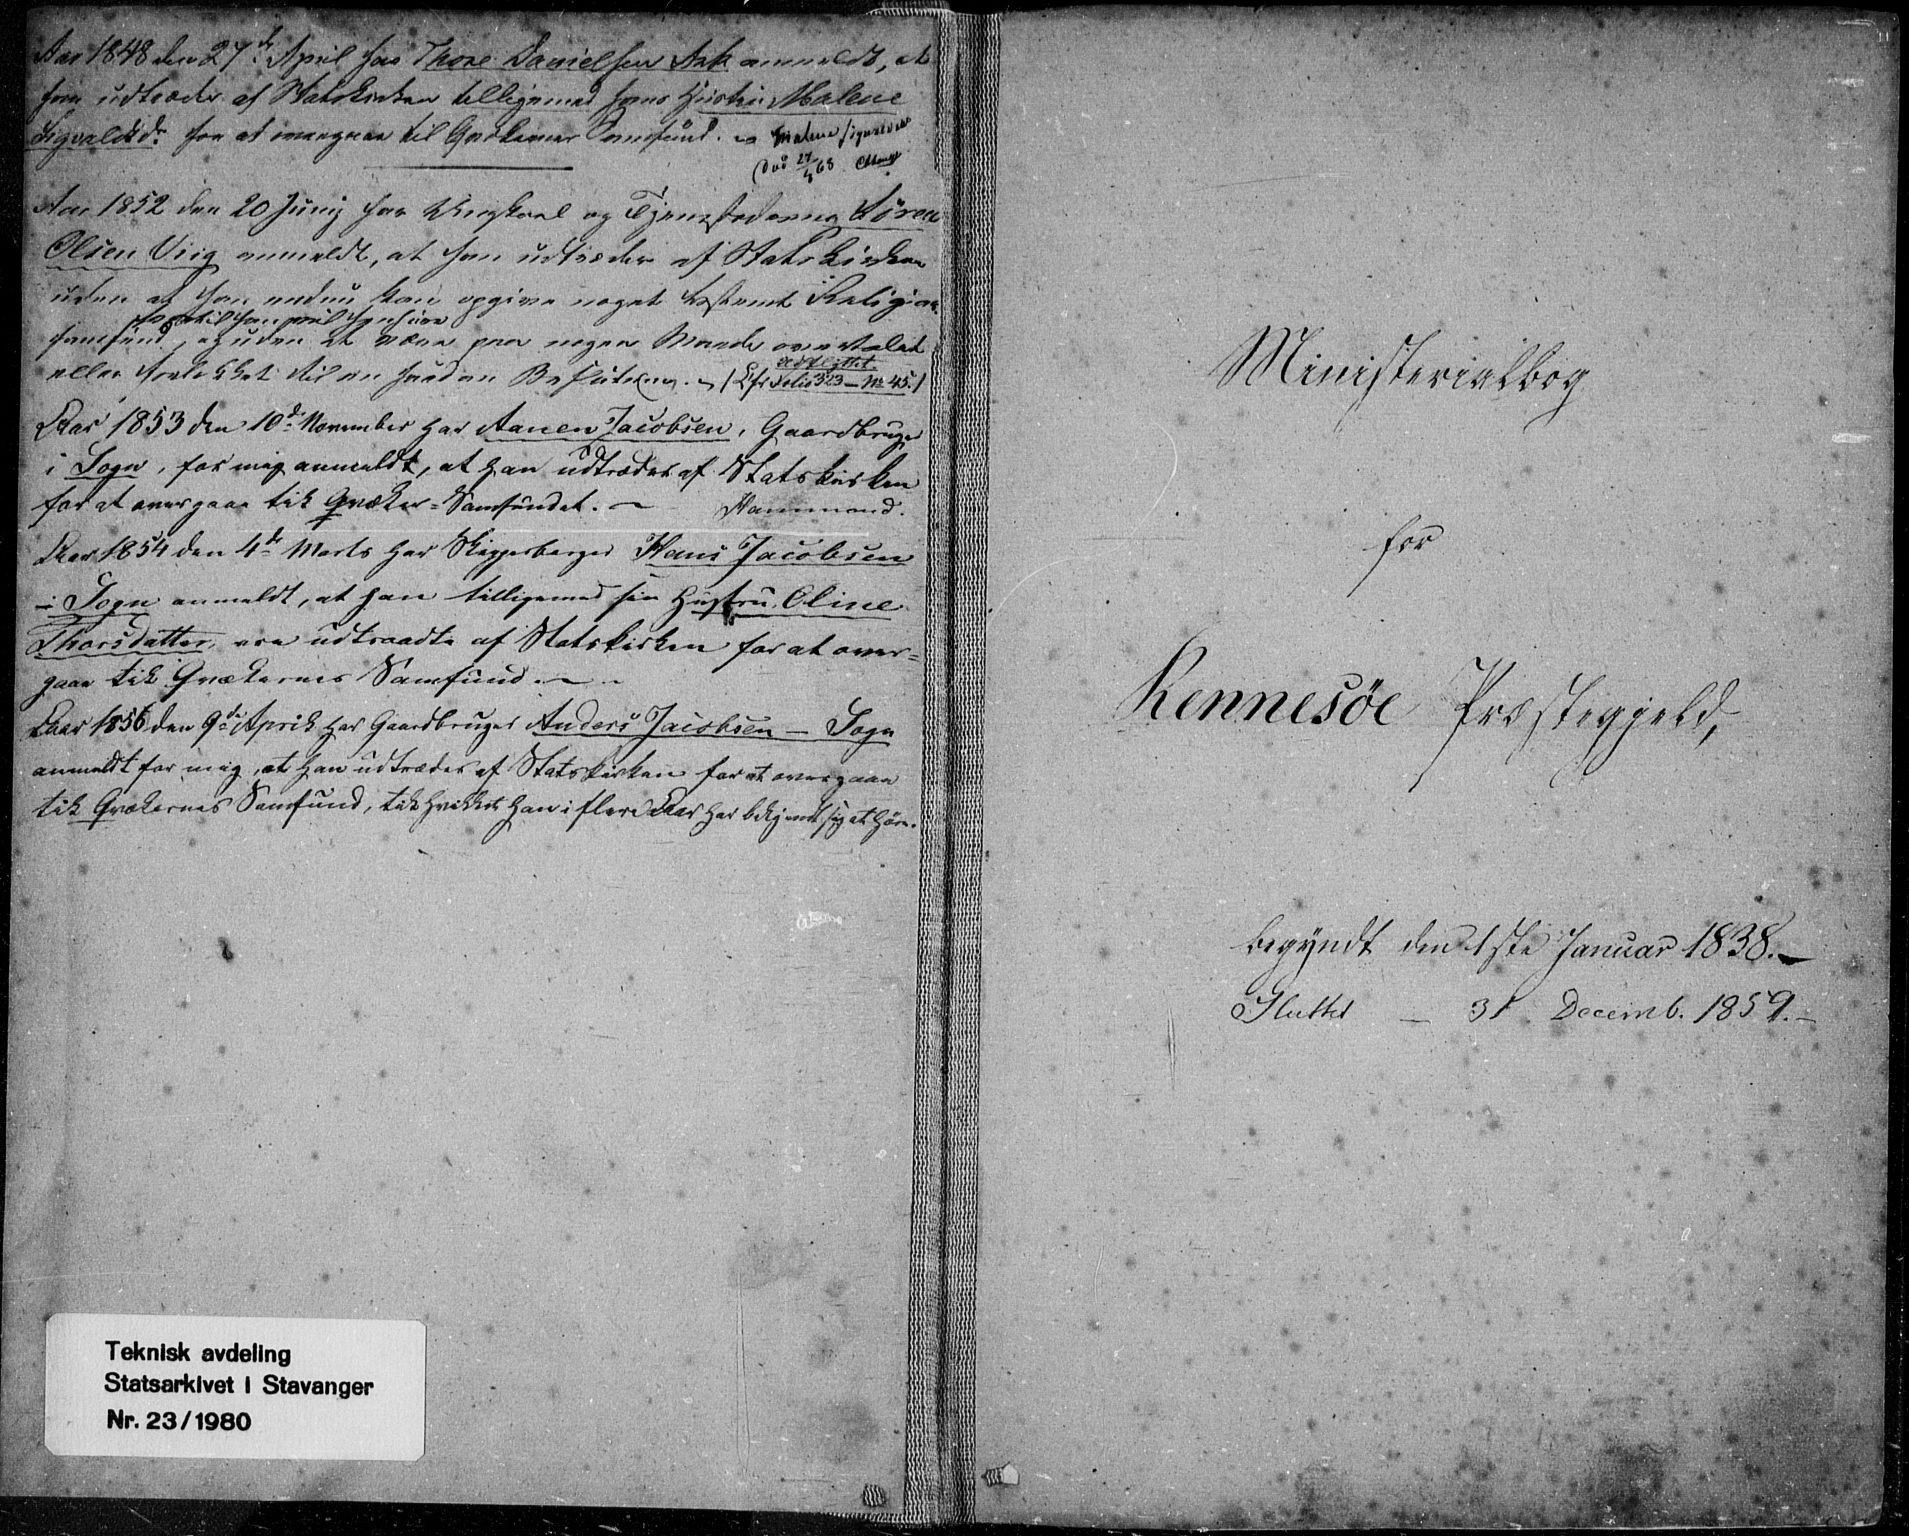 Aar 1848 den 27de April har Thore Danielsen Ask anmeldt, at
han udtræder af Statskirken tilligemed hans Hustru Malene
Sigvaldsdr. for at overgaae til Qvækernes Samfund. Malene Sigvaldsd
død 27/8 68
Aar 1852 den 20 Junij har Ungkarl og Søren
Olsen Viig anmeldt, at han udtræder af Statskirken
uden at han endnu kan opgive noget bestemt Religions-
samfund, og uden at være paa nogen Maade overtalet
eller forlokket til en saadan Beslutning. /Cfr folio 323 - No 45./
udflyttet
Aar 1853 den 10de November har Aanen Jacobsen, Gaardbruger
i Sogn, for mig anmeldt, at han udtræder af Statskirken
for at overgaae til Qvæker-Samfundet. Hammond.
Aar 1854 den 4de Marts har Hans Jacobsen
i Sogn anmeldt, at han tilligemed sin Hustru, Oline
Thorsdatter, ere udtraadte af Statskirken for at over=
gaae til Qvækernes Samfund.
Aar 1856 den 9de April har Gaardbruger Anders Jacobsen - Sogn
anmeldt for mig, at han udtræder af Statskirken for at overgaae
til Qvækernes Samfund, til hvilket han i flere Aar har bekjendt sig at høre.
Teknisk avdeling
Statsarkivet i Stavanger
Nr. 23/1980
Ministerialbog
for
Rennesøe Præstegjeld,
begyndt den 1ste Januar 1838.
Sluttet - 31 Decemb. 1859.